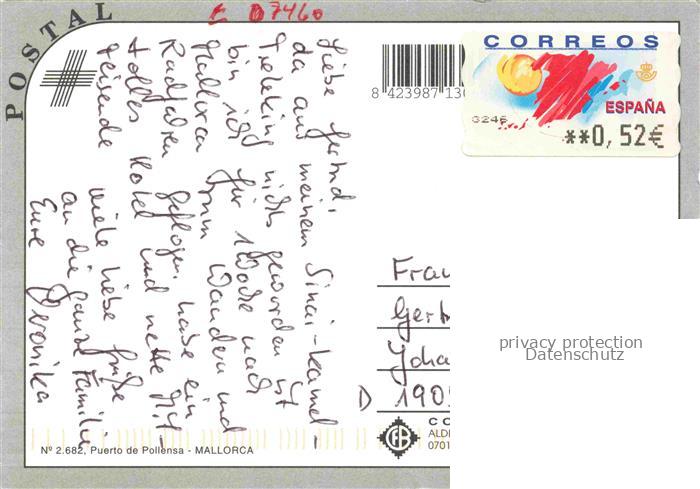 POSTAL
C 07460
Liebe Gertrud,
da aus meinem Sinai-Kamel-
Trekking nichts geworden ist
bin ich für 1 Woche nach
Mallorca zum Wandern und
Radfahren geflogen, habe ein
tolles Hotel und nette Mit-
reisende
viele liebe Grüße
an die ganze Familie
Eure Veronika
8 423987 130
CORREOS
ESPAÑA
**0,52€
Frau
Gert
D 190
CO
ALD
0701
Nº 2.682, Puerto de Pollensa - MALLORCA
privacy protection
Datenschutz